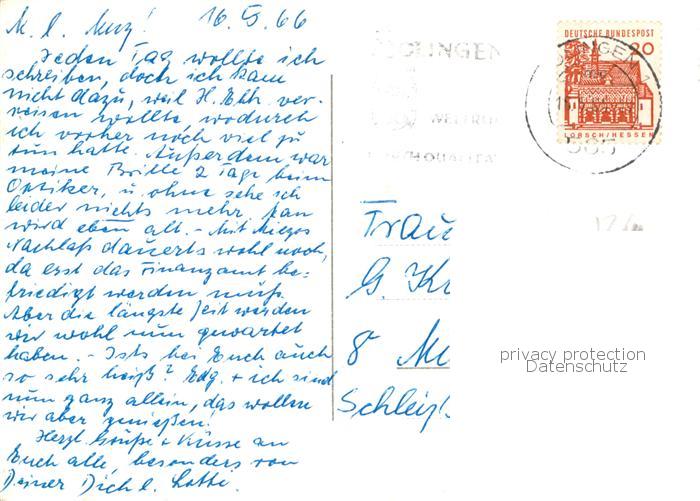 M. l. Muz! 16.5.66
Jeden Tag wollte ich
schreiben, doch ich kam
nicht dazu, weil H. Ehh. ver-
reisen wollte, wodurch
ich vorher noch viel zu
tun hatte. Außerdem war
meine Brille 2 Tage beim
Optiker, u. ohne sehe ich
leider nichts mehr. Man
wird eben alt. - Mit
Nachlaß dauerts wohl noch,
da erst das Finanzamt be-
friedigt werden muß.
Aber die längste Zeit werden
wir wohl nun gewartet
haben. - Ists bei Euch auch
so sehr heiß? Edg. + ich sind
nun ganz allein, das wollen
wir aber genießen!
Herzl. Grüße + Küsse an
Euch alle, besonders von
Deiner Dich l. Lotte.
SOLINGEN
DEUTSCHE BUNDESPOST
20
LORSCH/HESSEN
565
Frau
G. Kr
8 Mü
Schleiß
privacy protection
Datenschutz